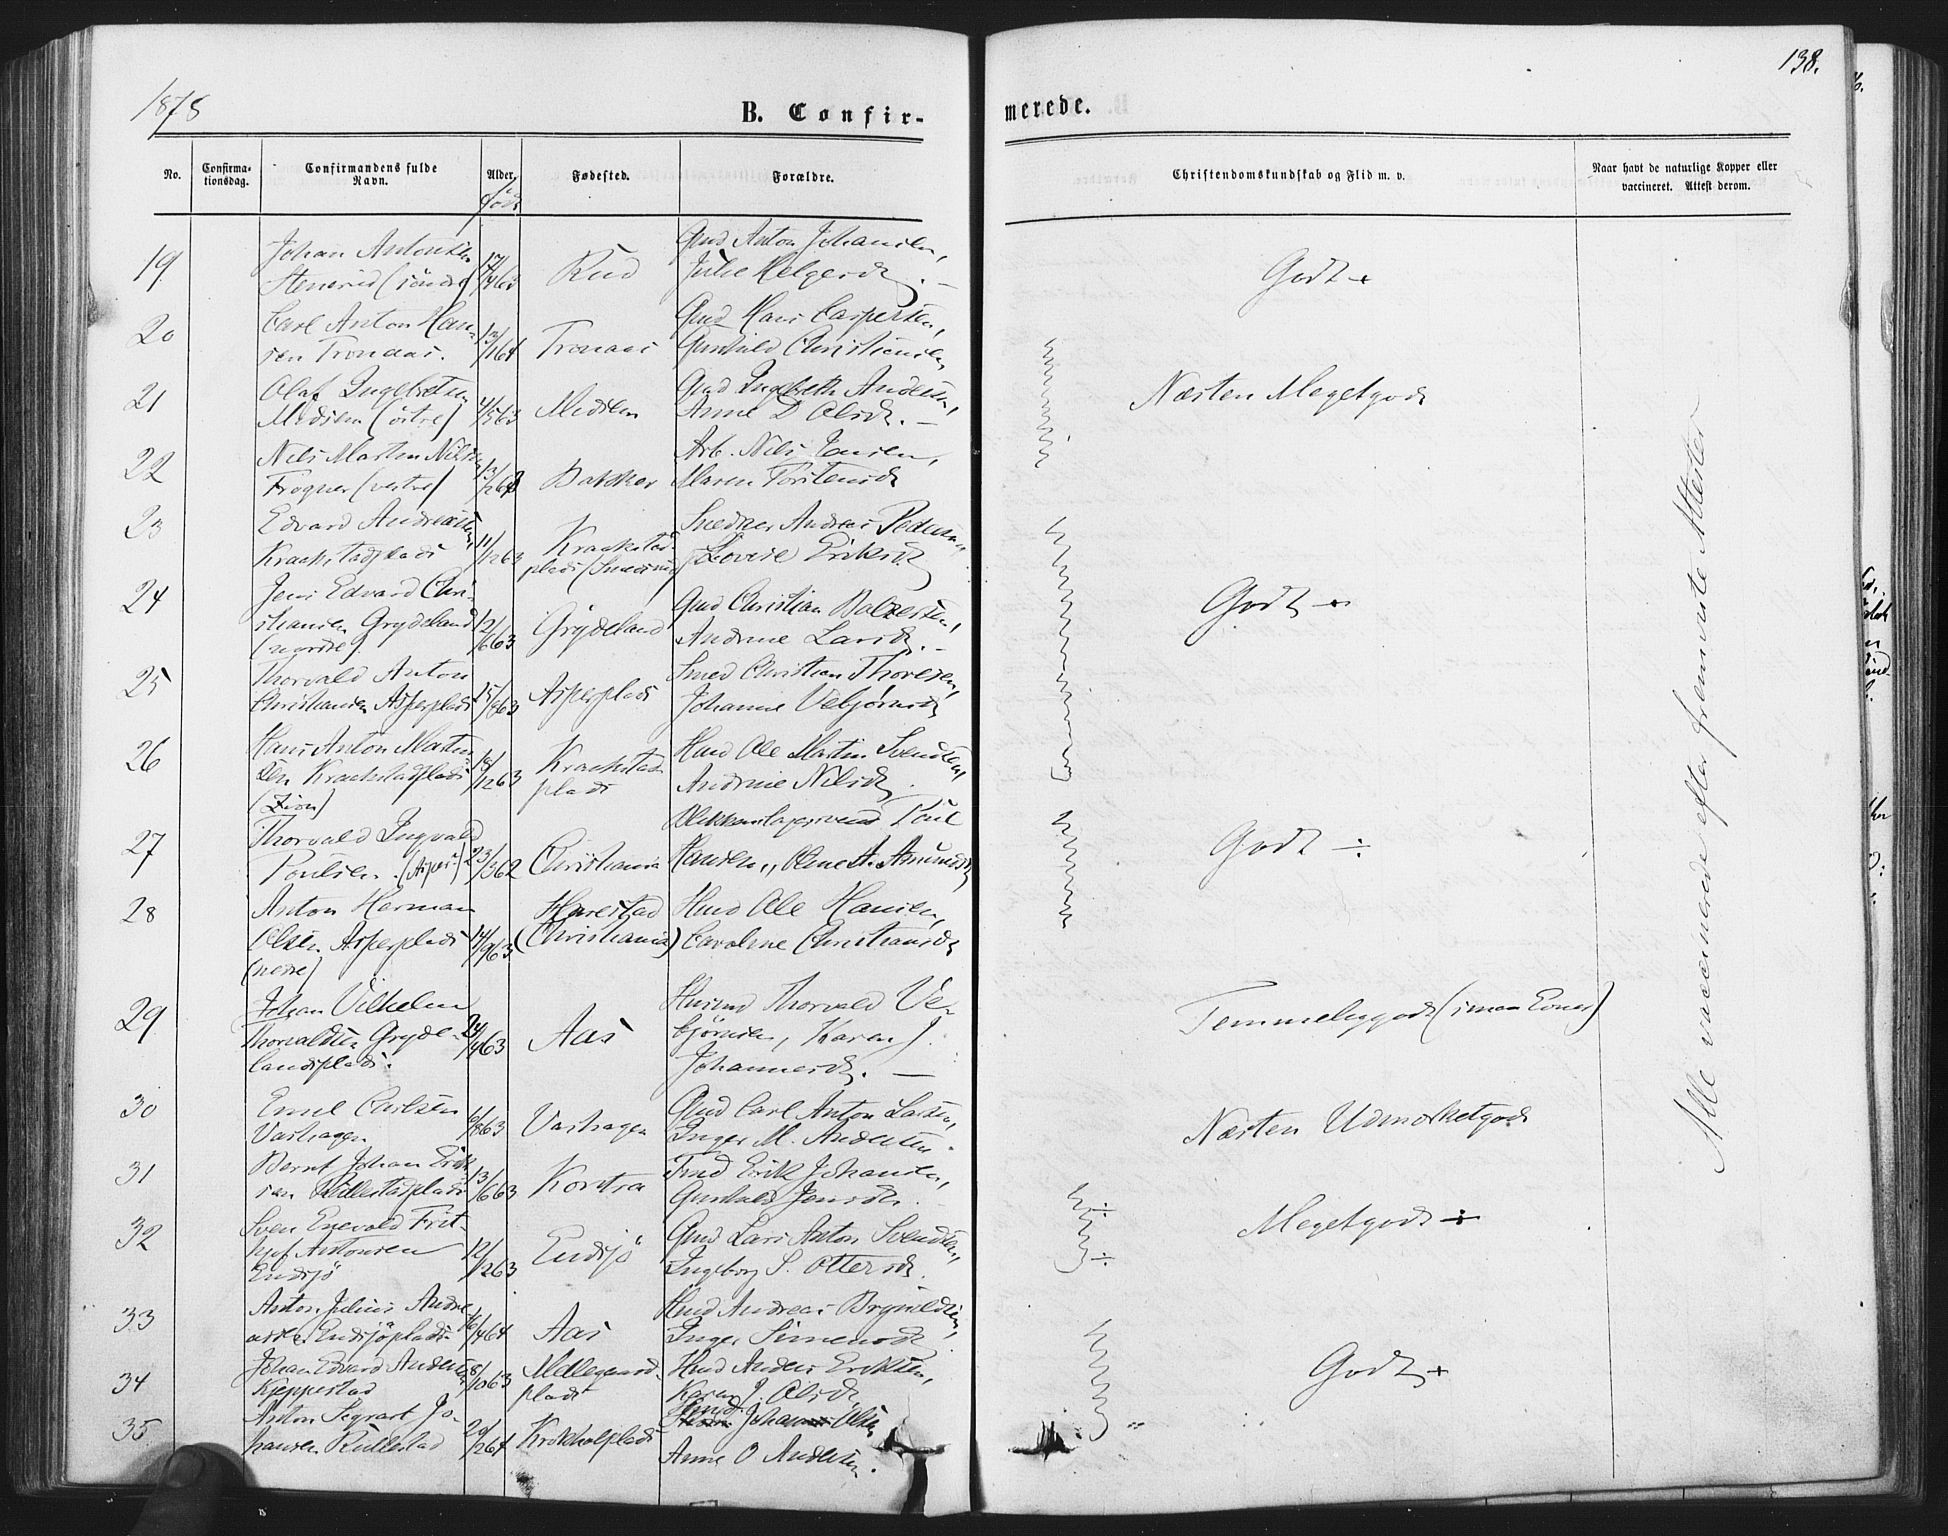 1878
138.
B. Confir-
merede.
No.
Confirma-
tionsdag.
Confirmandens fulde
Navn.
Alder.
Fødested.
Forældre.
Christendomskundskab og Flid m. v.
Naar havt de naturlige Kopper eller
vaccineret. Attest derom.
født
19
Johan Antonsen
Stensrud (söndre)
Rud
Gmd Anton Johansen,
Julie Helgesd.
Godt +
20
Carl Anton Han-
sen Tronaas.
13/164
Tronaas
Gmd Hans Caspersen,
Gunhild Christiansen
21
Olaf Ingebretsen
Midsem (östre)
4/563
Midsem
Gmd Ingebreth Andersen,
Anne D Olsd.
Næsten Megetgodt
22
Nils Martin Nilsen
Frogner (vestre)
Bakker
Arb. Nils Jensen,
Maren Torstensd
23
Edvard Andreassen,
Kraakstadplads
11/1263
Kraakstad
plads
Snedker Andreas Pedersen
Lovise Eriksd
24
Jens Edvard Chri-
stiansen Grydeland
(nordre)
2/663
Grydeland
Gmd Christian Balzersen,
Andrine Larsd.
Godt +
25
Thorvald Anton
Christiansen Asperplads
15/863
Asperplads
Smed Christian Thoresen,
Johanne Vebjørnsd
26
Hans Anton Martin-
sen Kraakstadplads
(Zion)
18/1263
Kraakstad
plads
Hmd Ole Martin Svendsen,
Andrine Nilsd.
27
Thorvald Ingvald
Poulsen. (Asper)
23/362
Christiania
Blikkenslagersvend Poul
Hansen, Oline A. Amundsd
Godt ÷
28
Anton Herman
Olsen Asperplads
(nedre)
14/963
Harestad
(Christiania)
Hmd Ole Hansen,
Caroline Christiansd
29
Johan Vilhelm
Thorvaldsen Gryde-
landsplads.
24/463
Aas
Husmd Thorvald Ve-
bjørnsen, Karen J.
Johannesd. —
Temmeliggodt (smaa Evner)
30
Emil Carlsen
Vashagen
6/863
Vashagen
Gmd Carl Anton Larsen,
Inger M. Andersen.
Næsten Udmærketgodt
31
Bernt Johan Erik-
sen Rullestadplads
13/663
Kontra
Tmd Erik Johansen,
Gunhild Jensd.
32
Sven Enevold Frit-
hjof Antonsen
Endsjö
12/1263
Endsjö
Gmd Lars Anton Svendsen,
Ingeborg S. Ottersd.
Megetgodt ÷
33
Anton Julius Andre-
assen Endsjöplads
16/464
Aas
Hmd Andreas Brynildsen,
Inger Simensd
34
Johan Edvard Andersen
Kjeppestad
8/1063
Mellegaard
plads
Hmd Anders Eriksen,
Karen J. Olsd.
Godt +
35
Anton Segvart Jo-
hansen Rullestad
29/264
Krokholplads
Hmd Johan Olsen
Anne O Andersen.
Alle vaccinerede efter fremviste Attester